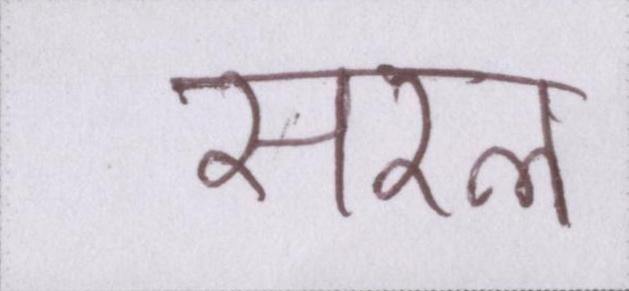 सरल